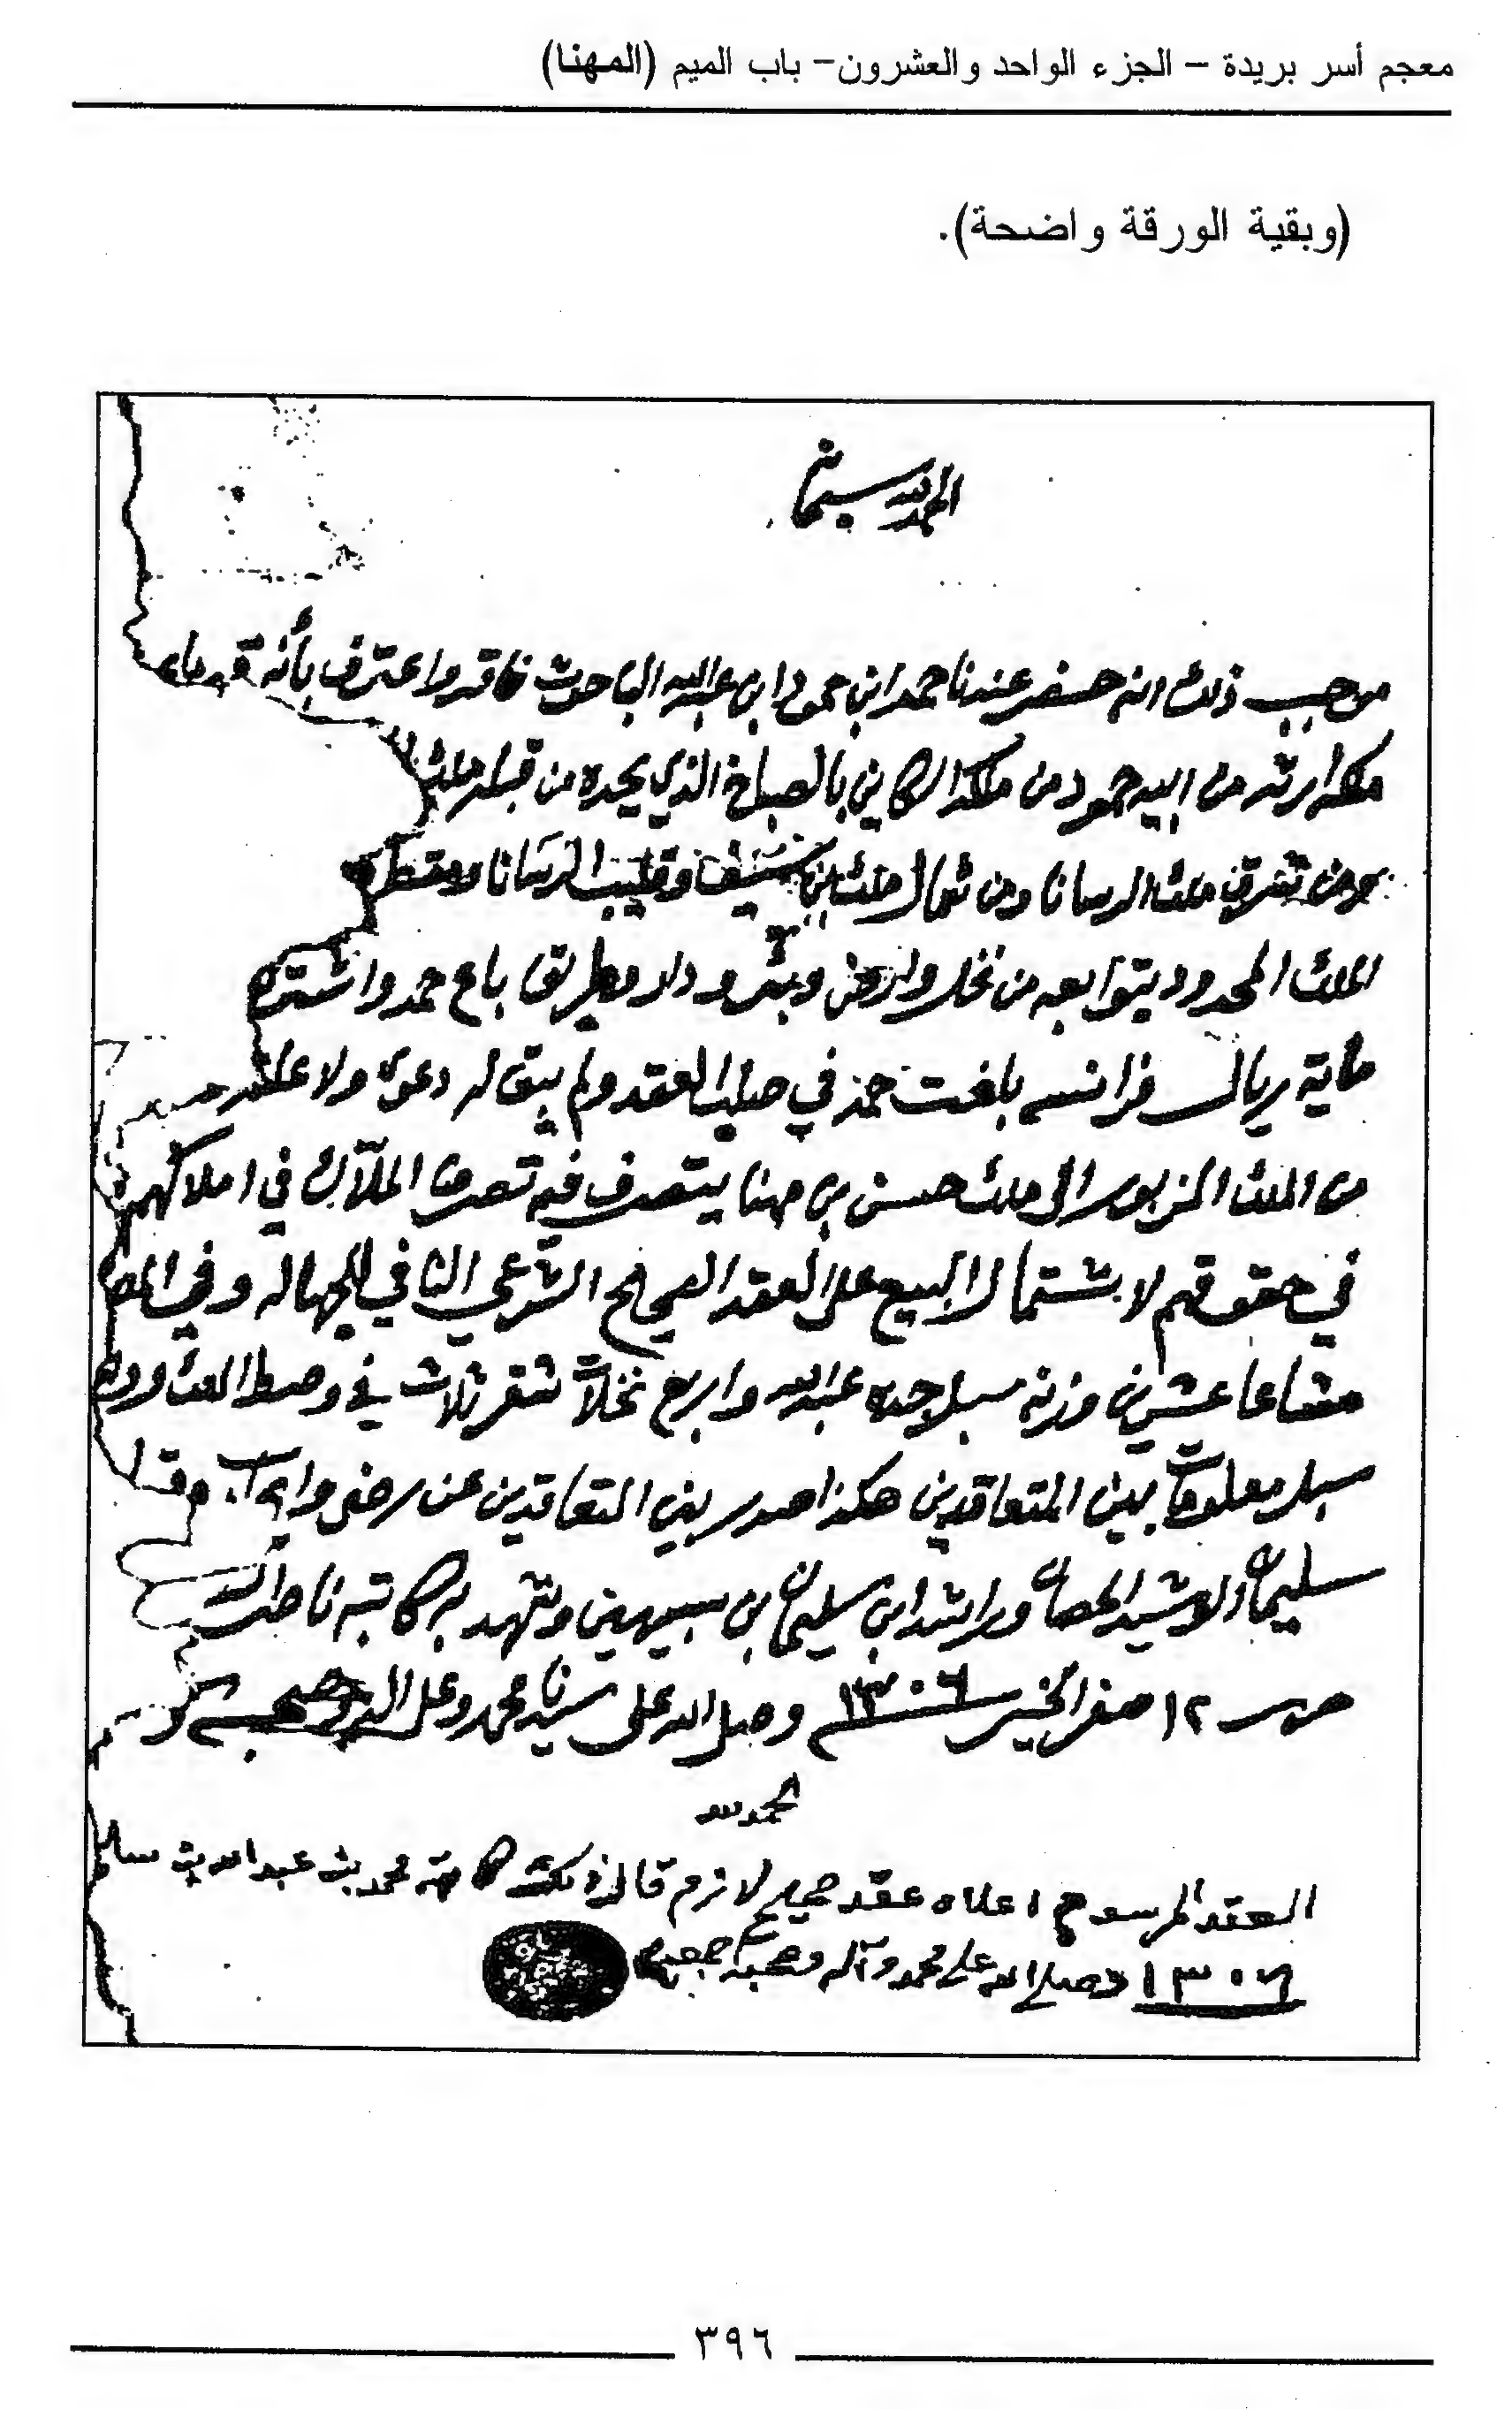 معجم أسر بريدة – الجزء الواحد والعشرون– باب الميم (المهنا)
(وبقية الورقة واضحة).
الحمد لله سبحانه
موجب ذلك انه حضر عندنا حمد ابن حمود ابن عبدالله الباحوث فاقر واعترف بأنه قد باع
ملكه ارثه من ابيه حمود من ملكه الكاين بالصباخ الذي يحده من قبله ملك
ومن شرق ملك الرسانا ومن شمال ملك وقليب الرسانا
الملك المحدود بتوابعه من نخل وارض وبئر ودار وطريق باع حمد واشترى
ماية ريال فرانسه بلغت حمد في صلب العقد ولم يبق له دعوى ولا علقه
من الملك المزبور الى ملك حسن بن مهنا يتصرف فيه تصرف الملاك في املاكهم
في حقوقهم لاشتمال البيع على العقد الصحيح الشرعي النافي للجهاله وفي
مشاعا عشرين وزنه سبل جده عبدالله واربع نخلات شقر ثلاث في وسط الملك
سبل معلومات بين المتعاقدين هكذا صدر بين المتعاقدين عن رضى
سليمان الرشيد وراشد ابن سليمان بن سبيهين وشهد به كاتبه ناصر
حرر ١٢ صفر الخير ١٣٠٦ وصلى الله على سيدنا محمد وعلى اله وصحبه وسلم
الحمد لله
العقد المرسوم اعلاه عقد صحيح لازم قال ذلك كاتبه محمد بن عبدالله بن سليم
١٣٠٦ وصلى الله على محمد وآله وصحبه اجمعين
٣٩٦